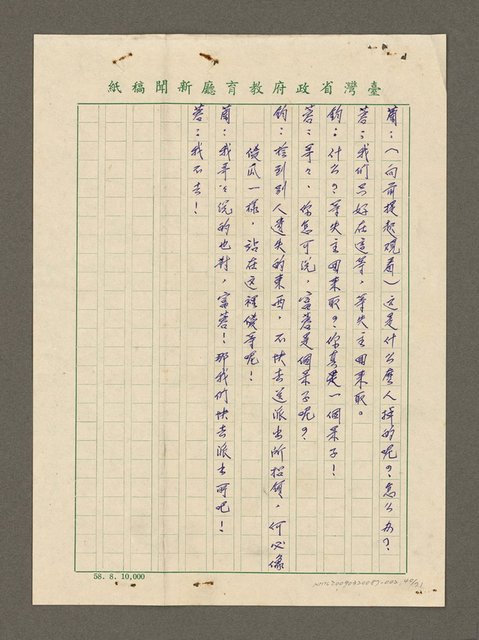 臺灣省政府教育廳新聞稿紙
蘭：（向前提起觀看）这是什么人掉的呢？怎么办？
蓉：我們只好在這等，等失主回來取。
鈞：什么？等失主回來取？你真是一個呆子！
蓉：哥々，你怎可說，富蓉是個呆子呢？
鈞：撿到別人遺失的東西，不快去送派出所招領，何必像
傻瓜一樣，站在这裡傻等呢！
蘭：我哥々說的也對，富蓉！那我們快去派出所吧！
蓉：我不去！
58. 8. 10,000